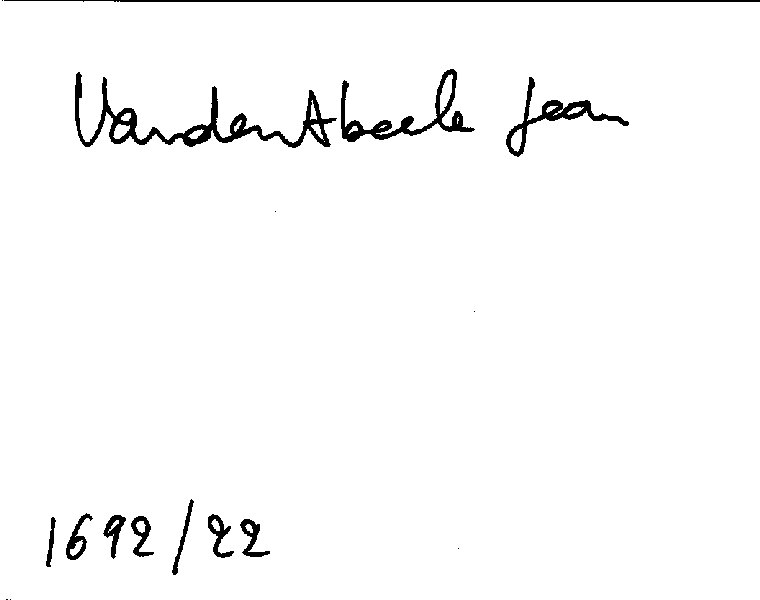 VandenAbeele Jean
1692/22